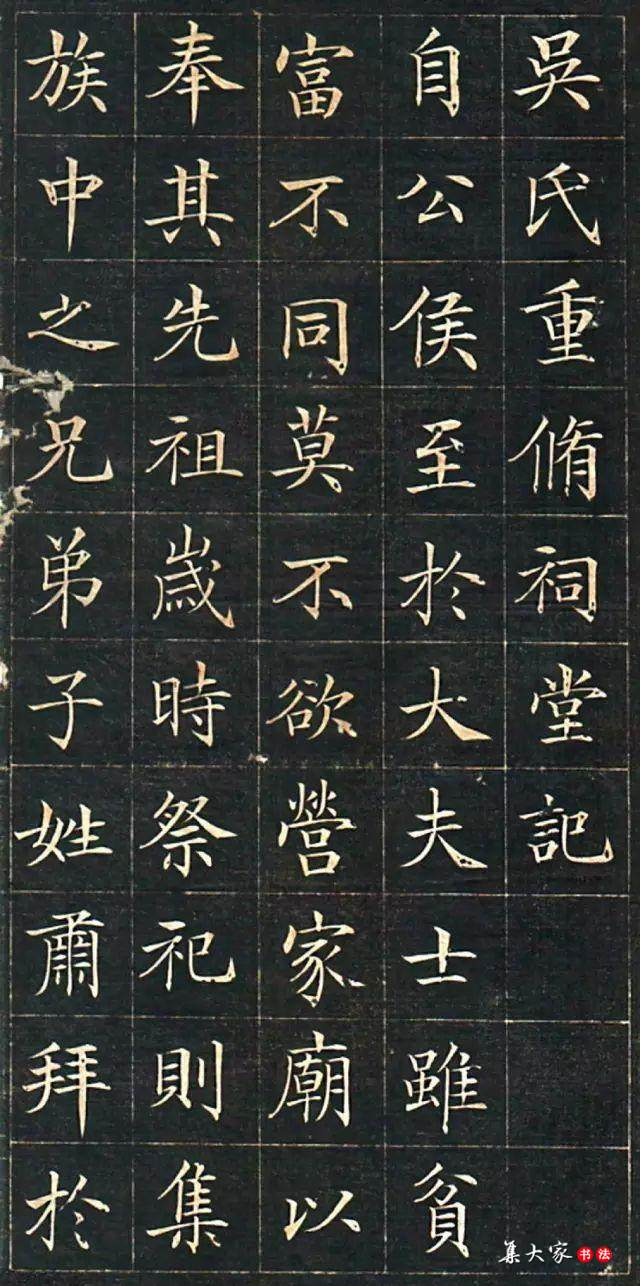 吳氏重脩祠堂記
自公侯至於大夫士雖貧
富不同莫不欲營家廟以
奉其先祖歲時祭祀則集
族中之兄弟子姓肅拜於
集大家书法